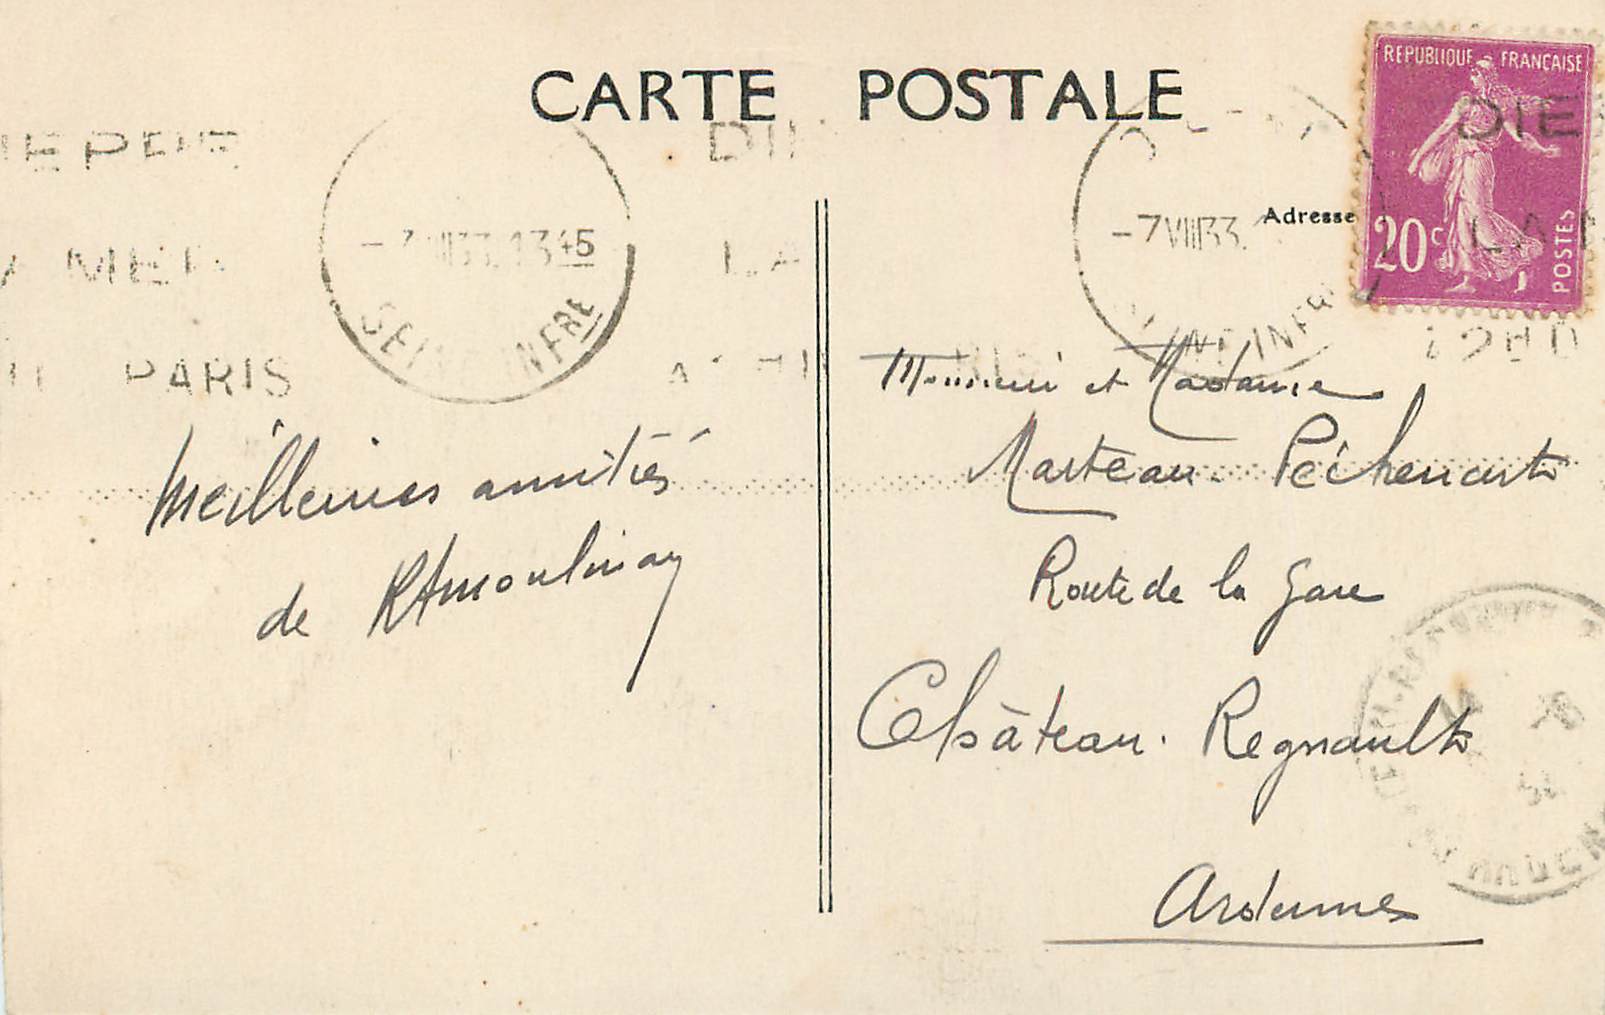 CARTE POSTALE
REPUBLIQUE FRANÇAISE
20c
POSTES
DIE
LA
IEPPE
A MER
PARIS
-7 VIII 33. 13 45
SEINE INFRE
DIE
LA
-7 VIII 33.
SEINE INFRE
Adresse
Meilleures amitiés
de
Monsieur et Madame
Marteau-Péchenart
Route de la Gare
Château-Regnault
Ardennes